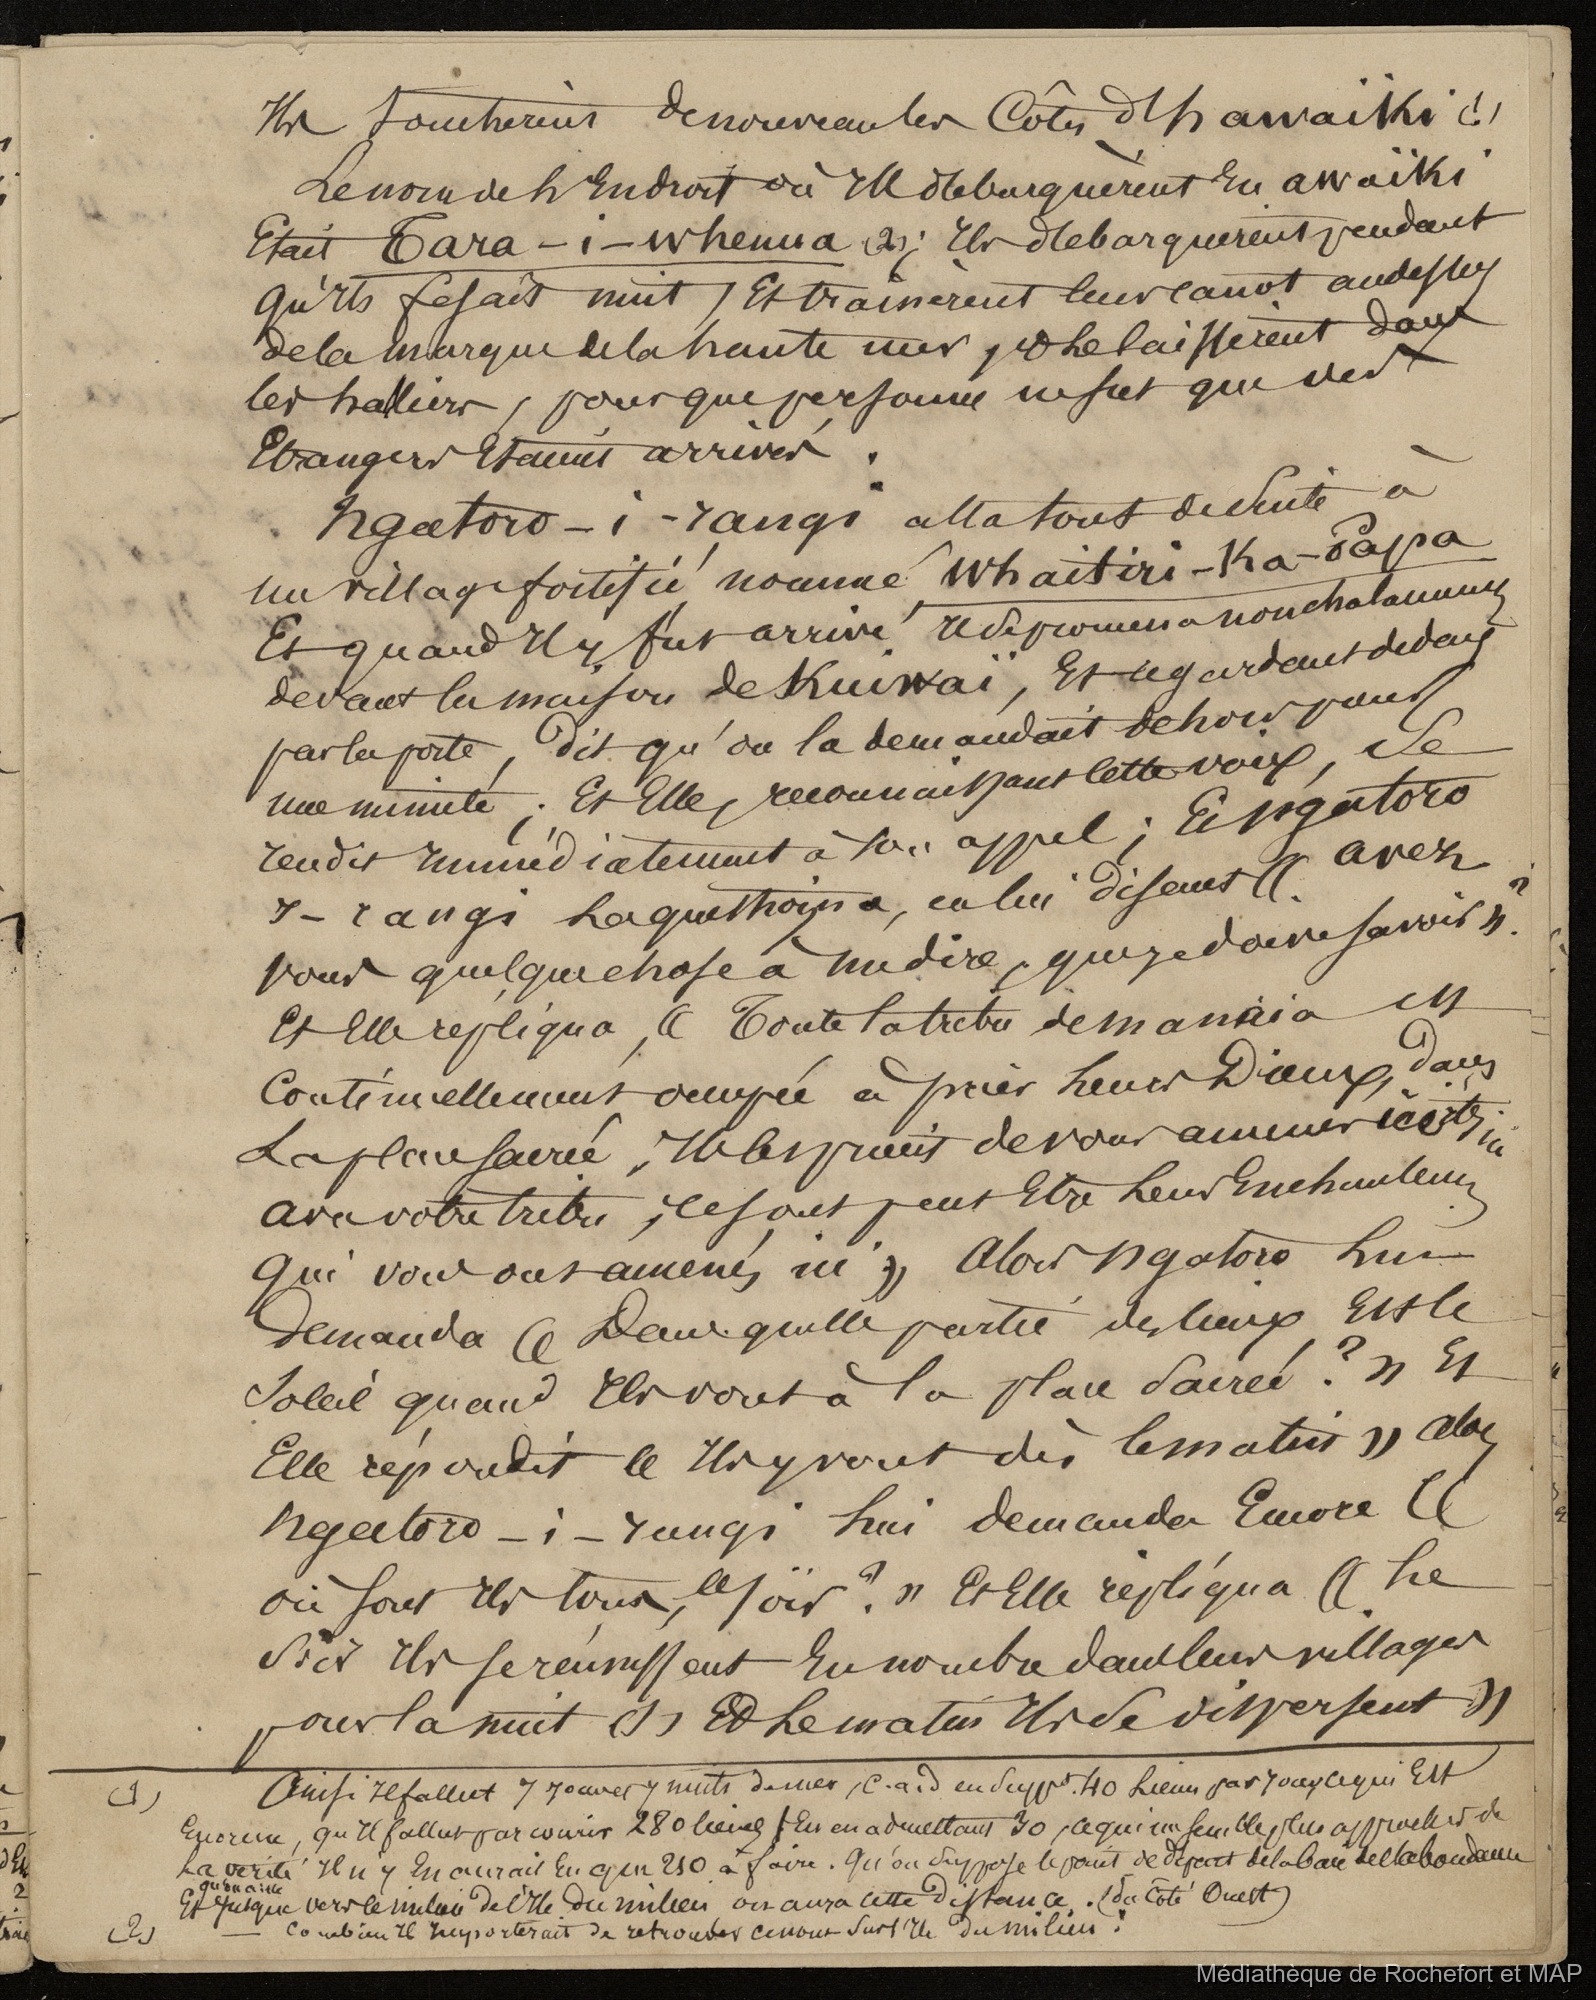 Ils touchèrent de nouveau les Côtes d'hawaïki (1)
Le nom de l'Endroit où Ils débarquèrent En awaïki
Etait Tara-i-whenua (2); Ils débarquèrent pendant
qu'Ils fesait nuit, Et traînèrent leur canot au dessus
de la marque de la haute mer, et le laissèrent dans
les halliers, pour que personne ne sut que des
Etrangers Etaient arrivés.
Ngatoro-i-rangi alla tout de suite à
un village fortifié nommé Whaitiri-Ka-Papa
Et quand Il y fut arrivé Il se promena nonchalamment
devant la maison de Kuiwaï, Et regardant dedans
par la porte, dit qu'on la demandait dehors pour
une minute; Et Elle, reconnaissant cette voix, se
rendit Immédiatement à son appel; Et Ngatoro
i-rangi la questionna, en lui disant « avez
vous quelque chose à me dire, que je doive savoir »?
Et Elle répliqua, « Toute la tribu de manaia est
Continuellement occupée à prier leurs Dieux, dans
La place sacrée, Ils les prient de vous amener ici
avec votre tribu; ce sont peut Etre leurs Enchantemens
qui vous ont amenés ici » Alors Ngatoro lui
demanda « Dans quelle partie des Cieux Est le
Soleil quand Ils vont à la place Sacrée? » Et
Elle répondit « Ils y vont dès le matin » Alors
Ngatoro-i-rangi lui demanda Encore «
où sont Ils tous, le soir? » Et Elle répliqua « Le
Soir Ils se réunissent En nombre dans leurs villages
pour la nuit Et Le matin Ils se dispersent »
(1) Ainsi Il fallut 7 jours 7 nuits de mer, c.a.d en supp.t 40 Lieues par jour, ce qui Est
Enorme, qu'Il fallut parcourir 280 lieues; En en admettant 30, ce qui me semble plus approcher de
La vérité Il n'y En aurait En que 210 à faire. Qu'on suppose le point de départ de la baie de l'abondance
Et qu'on aille jusque vers le milieu de l'Ile du milieu on aura cette distance. (du Côté Ouest)
(2) — Combien Il Importerait de retrouver ce nom sur l'Ile du milieu!
Médiathèque de Rochefort et MAP